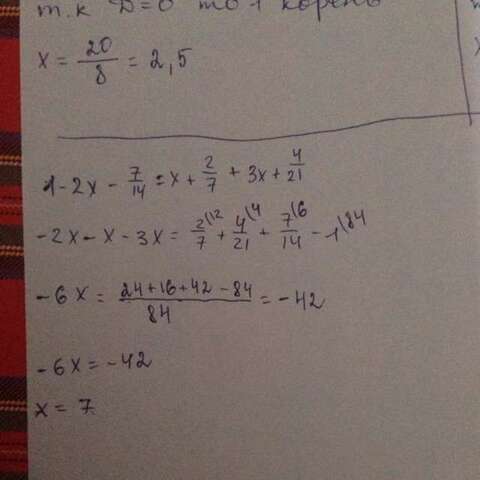 т.к D=0 то 1 корень
x = 20/8 = 2,5
1 - 2x - 7/14 = x + 2/7 + 3x + 4/21
-2x - x - 3x = 2/7 (12 + 4/21 (4 + 7/14 (6 - 1 (84
-6x = (24+16+42-84)/84 = -42
-6x = -42
x = 7